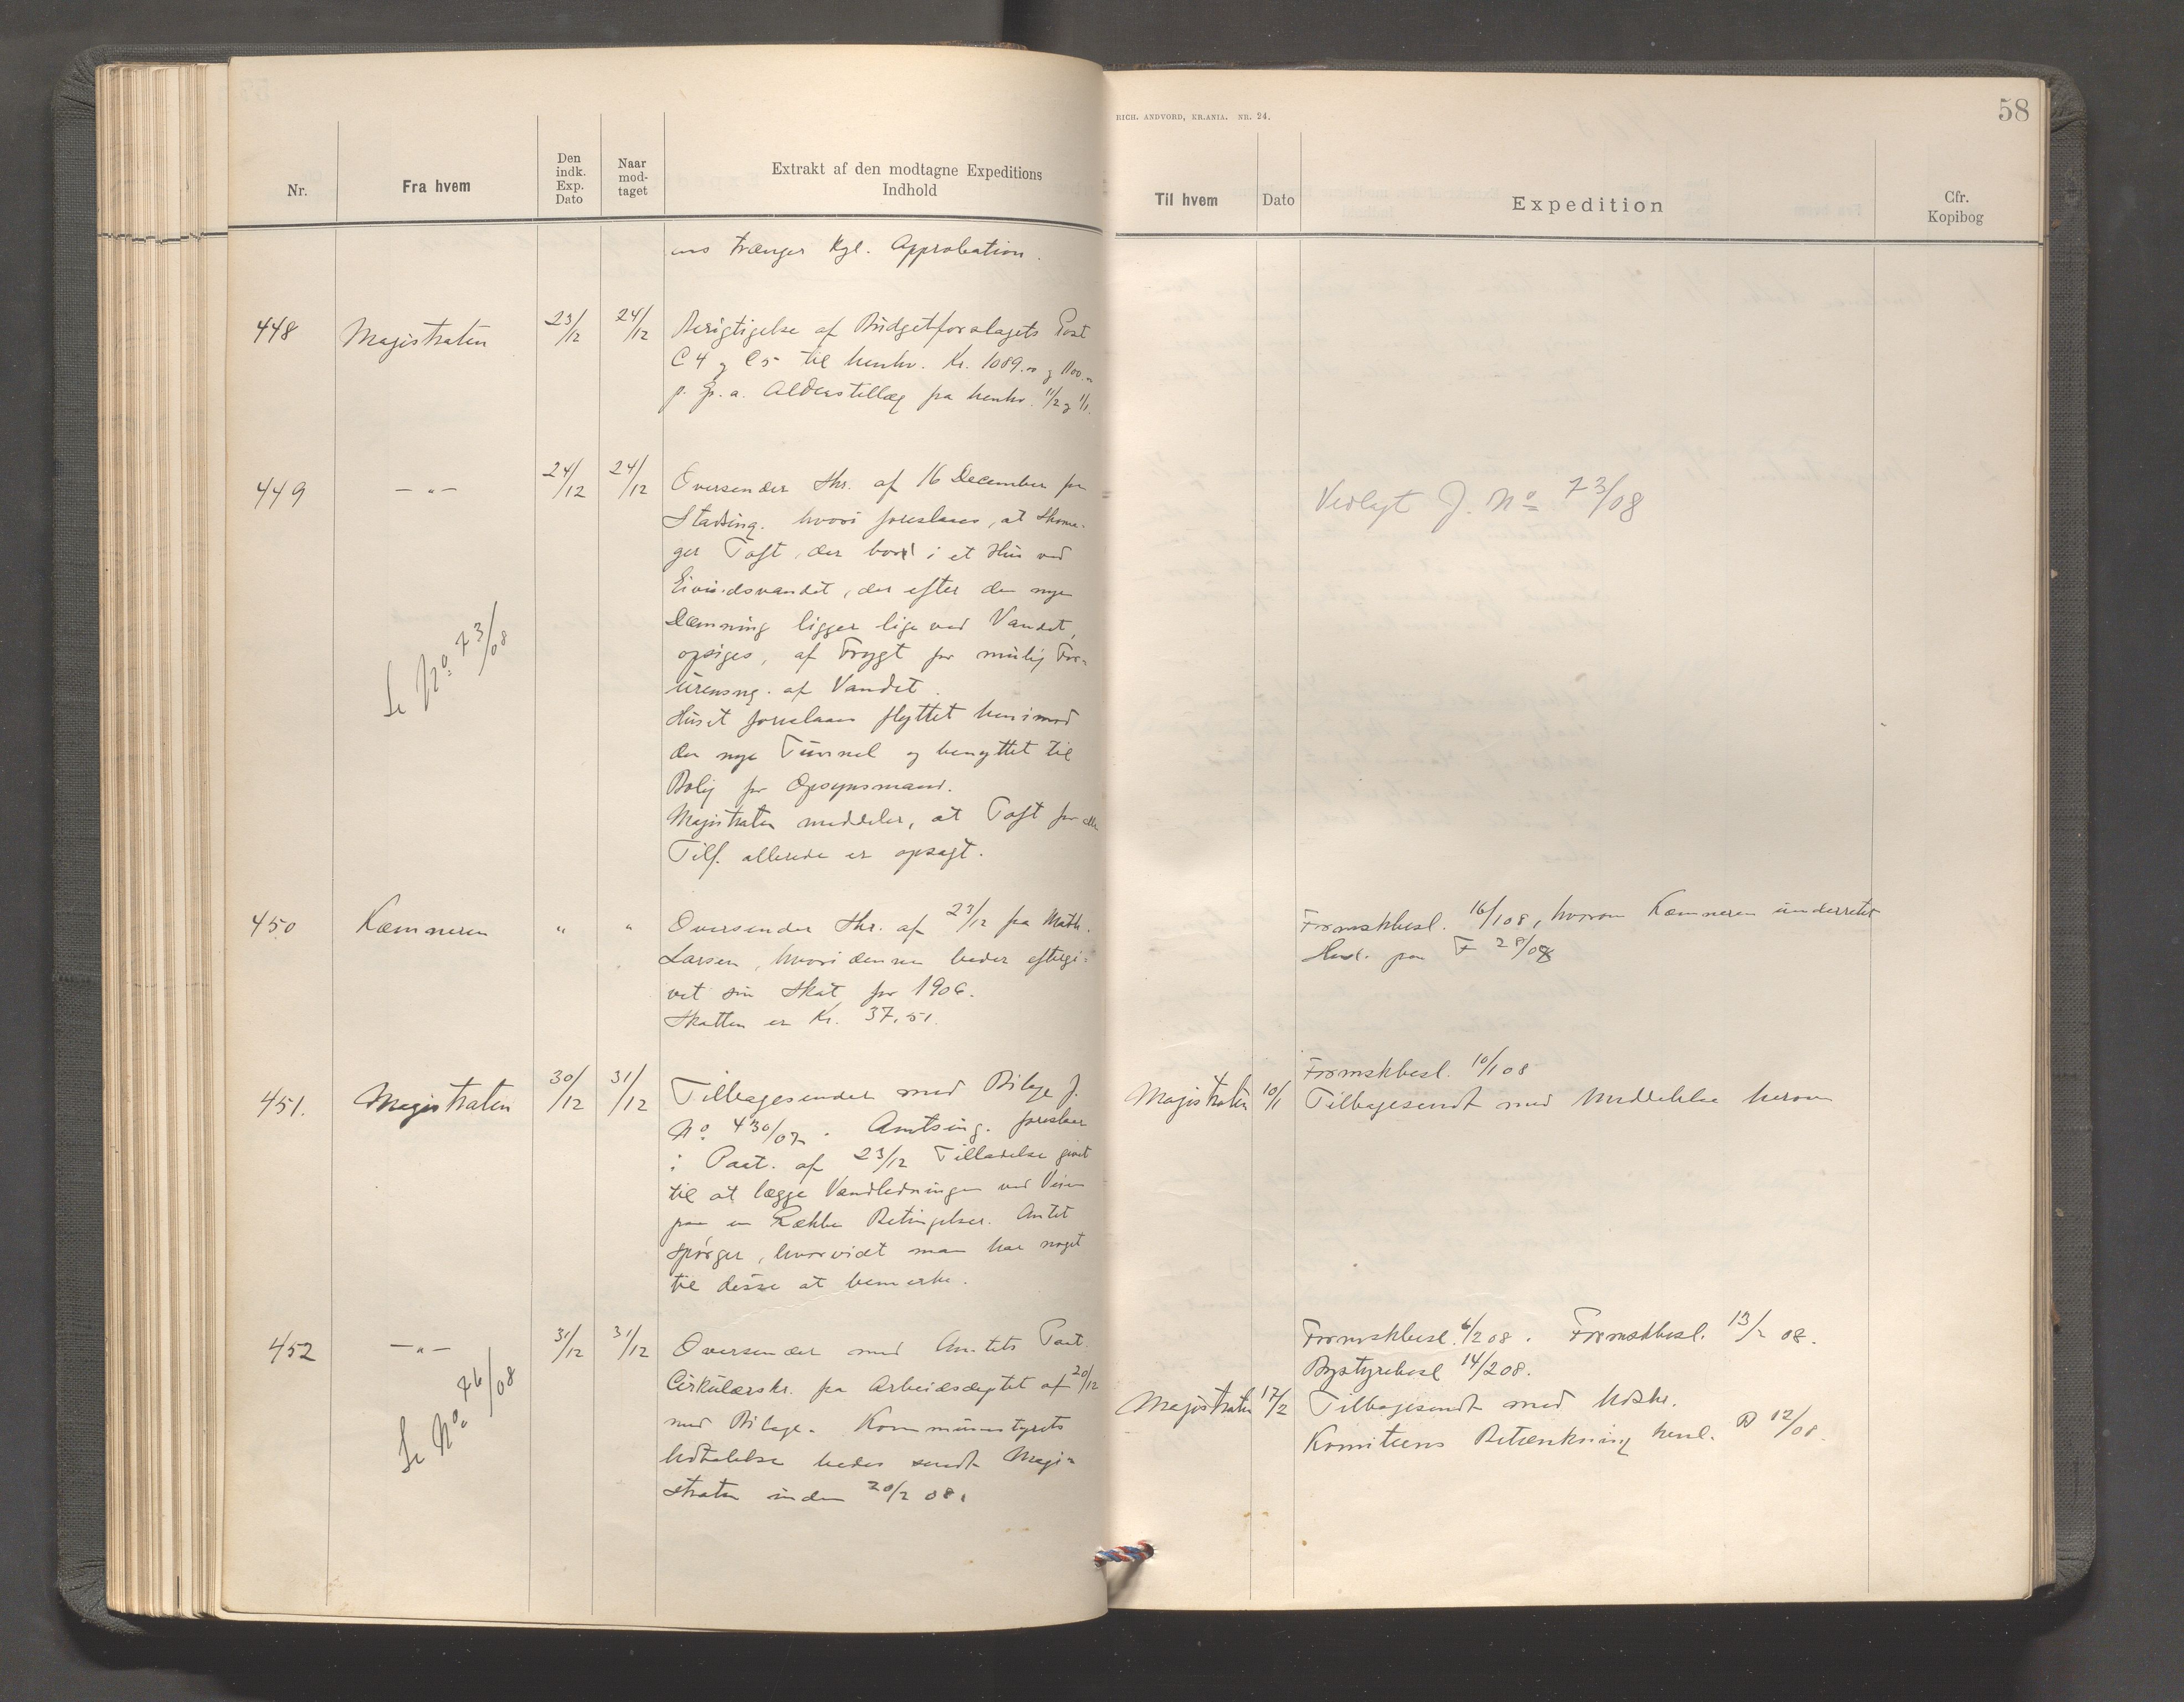 RICH. ANDVORD, KR.ANIA. NR. 24.
58
Nr.
Fra hvem
Den indk. Exp. Dato
Naar mod-taget
Extrakt af den modtagne Expeditions Indhold
Til hvem
Dato
Expedition
Cfr. Kopibog
trænger Kgl. Approbation.
448 Magistraten 23/12 24/12 Berigtigelse af Budgetforslagets Post
C 4 og C 5 til henhv. Kr. 1089.00 og 1100.00
p. Gr. a. Alderstillæg fra henhv. 1/2 og 1/1.
449 — „ — 24/12 24/12 Oversender Skr. af 16 December fra
Stadsing. hvori foreslaaes, at Skoma-
ger Toft, der bor i et Hus ved
Eivindsvandet, der efter den nye
Dæmning ligger lige ved Vandet,
opsiges, af Frygt for mulig For-
urensng. af Vandet.
Huset foreslaaes flyttet henimod
den nye Tunnel og benyttet til
Bolig for Opsynsmand.
Magistraten meddeler, at Toft for alle
Tilf. allerede er opsagt.
Se No. 73/08
Vedlagt J. No 73/08
450 Kæmneren „ „ Oversender Skr. af 23/12 fra Math.
Larsen, hvori denne beder eftergi-
vet sin Skat for 1906.
Skatten er Kr. 37,51.
Formskbesl. 16/1 08, hvorom Kæmneren underrettet
Henl. paa F 28/08
451. Magistraten 30/12 31/12 Tilbagesender med Bilage J.
No. 430/07. Amtsing. foreslaar
i Paat. af 23/12 Tilladelse givet
til at lægge Vandledningen ved Veien
paa en Række Betingelser. Amtet
spørger, hvorvidt man har noget
til disse at bemerke.
Formskbesl. 10/1 08
Magistraten 10/1 Tilbagesendt med Meddelelse herom
452 — „ — 31/12 31/12 Oversender med Amtets Paat.
Cirkulærskr. fra Arbeidsdeptet af 20/12
med Bilage. Kommunestyrets
Udtalelse bedes sendt Magi-
straten inden 20/2 08.
Se No. 76/08
Formskbesl. 6/2 08. Formskbesl. 13/2 08.
Bystyrebesl 14/2 08.
Magistraten 17/2 Tilbagesendt med Udskr.
Komiteens Betænkning henl. B 12/08.